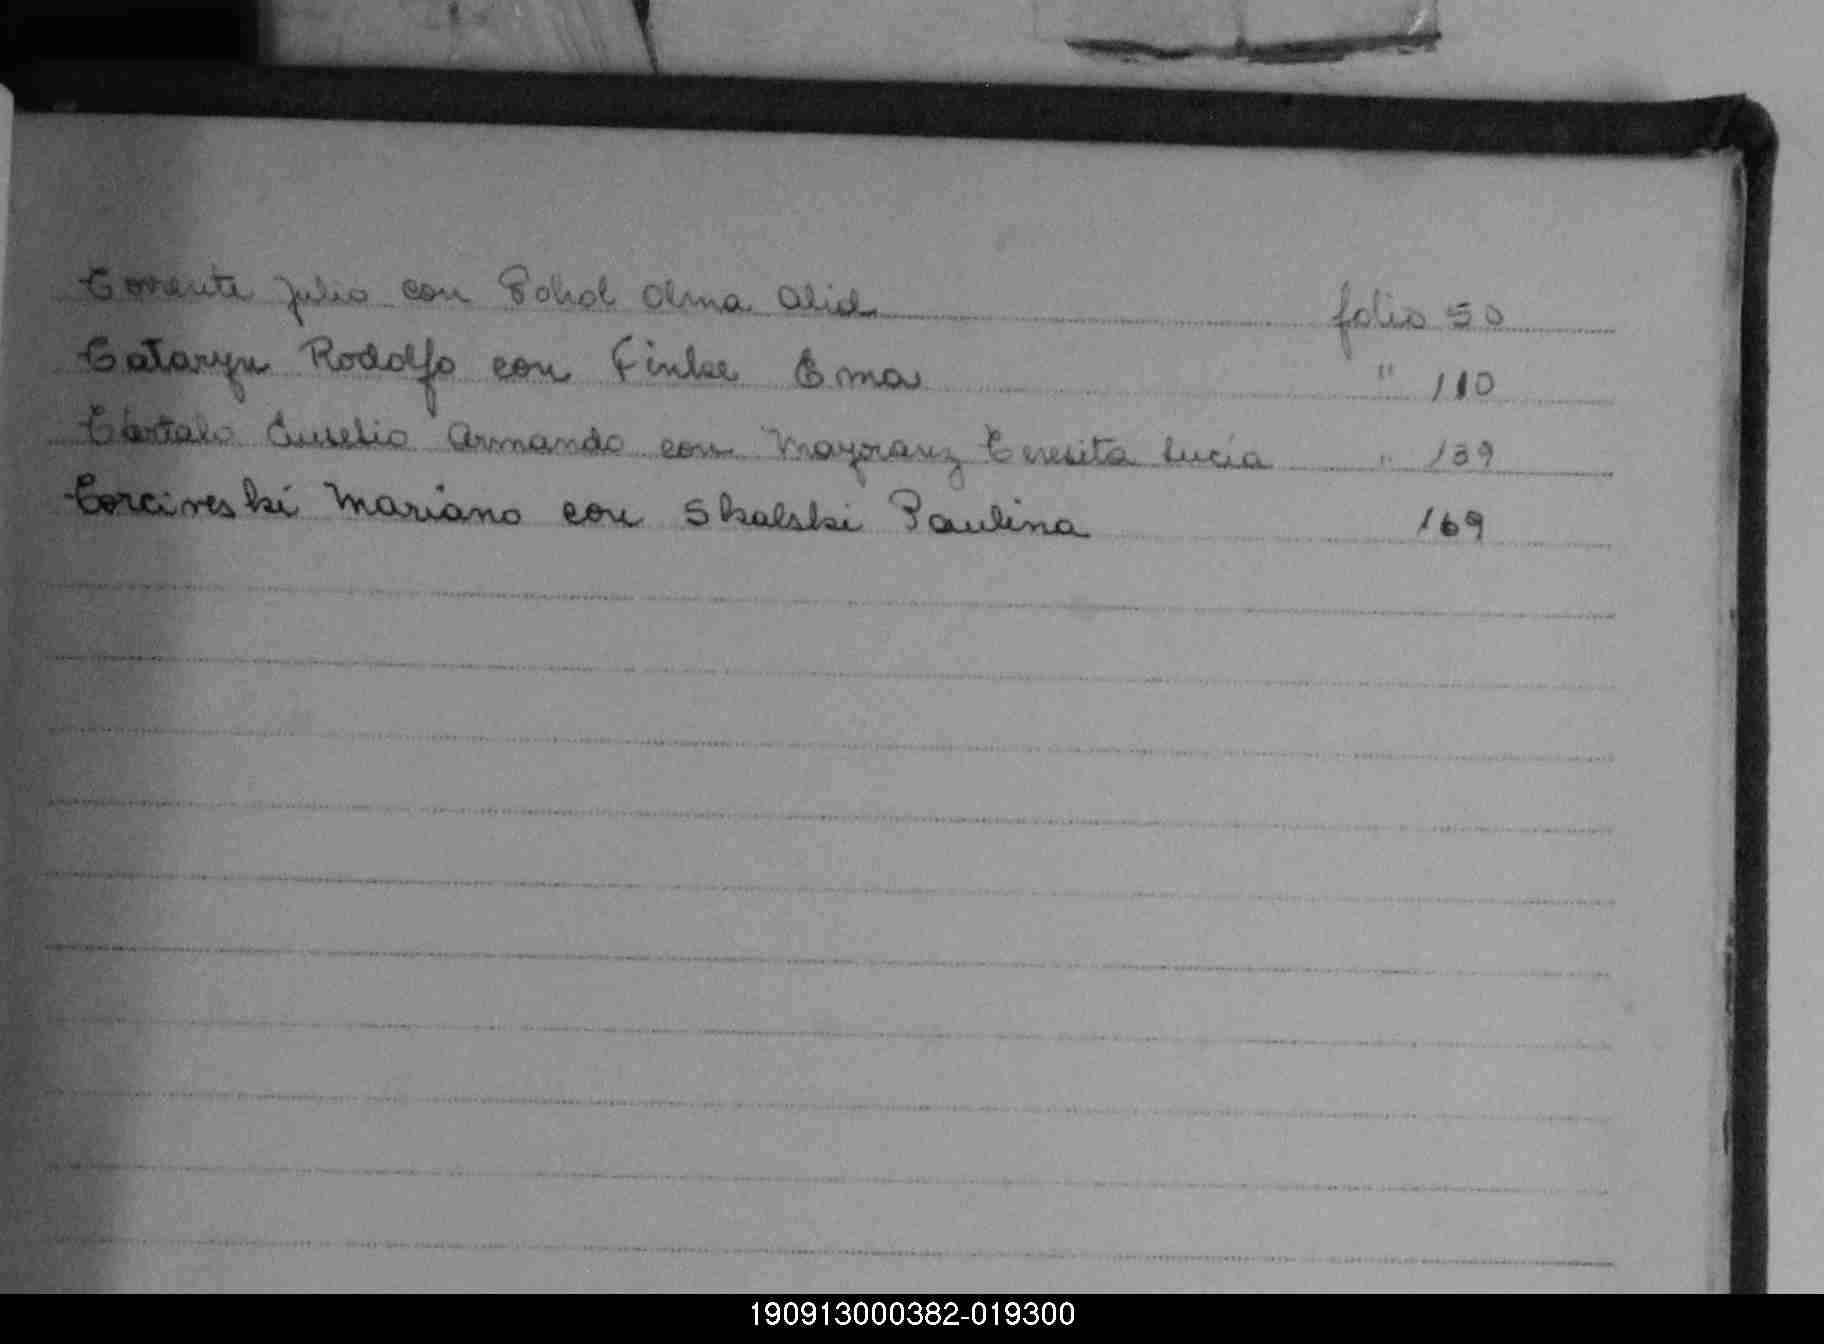 Torrente Julio con Sokol Olma Alid folio 50
Tataryn Rodolfo con Finke Ema " 110
Tártalo Eusebio Armando con Mayoranz Teresita Lucía " 139
Torciveski Mariano con Skalski Paulina 169
190913000382-019300